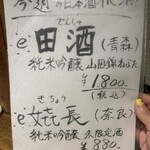 今週の日本酒
でんしゅ
田酒(青森)
純米吟醸 山田錦
¥1800.
(税込)
きちょう
㐂長(奈良)
純米吟醸 久限定酒
¥880.